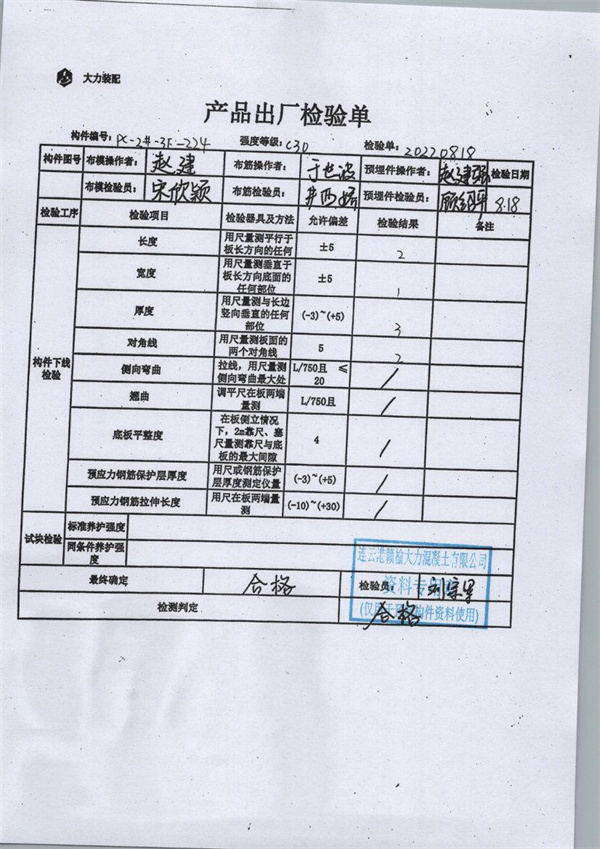 大力装配
产品出厂检验单
构件编号: PC-2#-3F-224 强度等级: C30 检验单: 20220818
构件图号 布模操作者: 赵建 布筋操作者: 预埋件操作者: 赵建 检验日期
布模检验员: 宋欣颖 布筋检验员: 预埋件检验员: 8.18
检验工序 检验项目 检验器具及方法 允许偏差 检验结果 备注
构件下线检验
长度 用尺量测平行于板长方向的任何 ±5 2
宽度 用尺量测垂直于板长方向底面的任何部位 ±5 1
厚度 用尺量测与长边竖向垂直的任何部位 (-3)~(+5) 3
对角线 用尺量测板面的两个对角线 5 2
侧向弯曲 拉线，用尺量测侧向弯曲最大处 L/750且 ≤20 /
翘曲 调平尺在板两端量测 L/750且 /
底板平整度 在板侧立情况下，2m靠尺、塞尺量测靠尺与底板的最大间隙 4 /
预应力钢筋保护层厚度 用尺或钢筋保护层厚度测定仪量 (-3)~(+5) /
预应力钢筋拉伸长度 用尺在板两端量测 (-10)~(+30) /
试块检验 标准养护强度
同条件养护强度
连云港赣榆大力混凝土有限公司
最终确定 合格 检验员:
资料专
检测判定 合格
(仅用 构件资料使用)